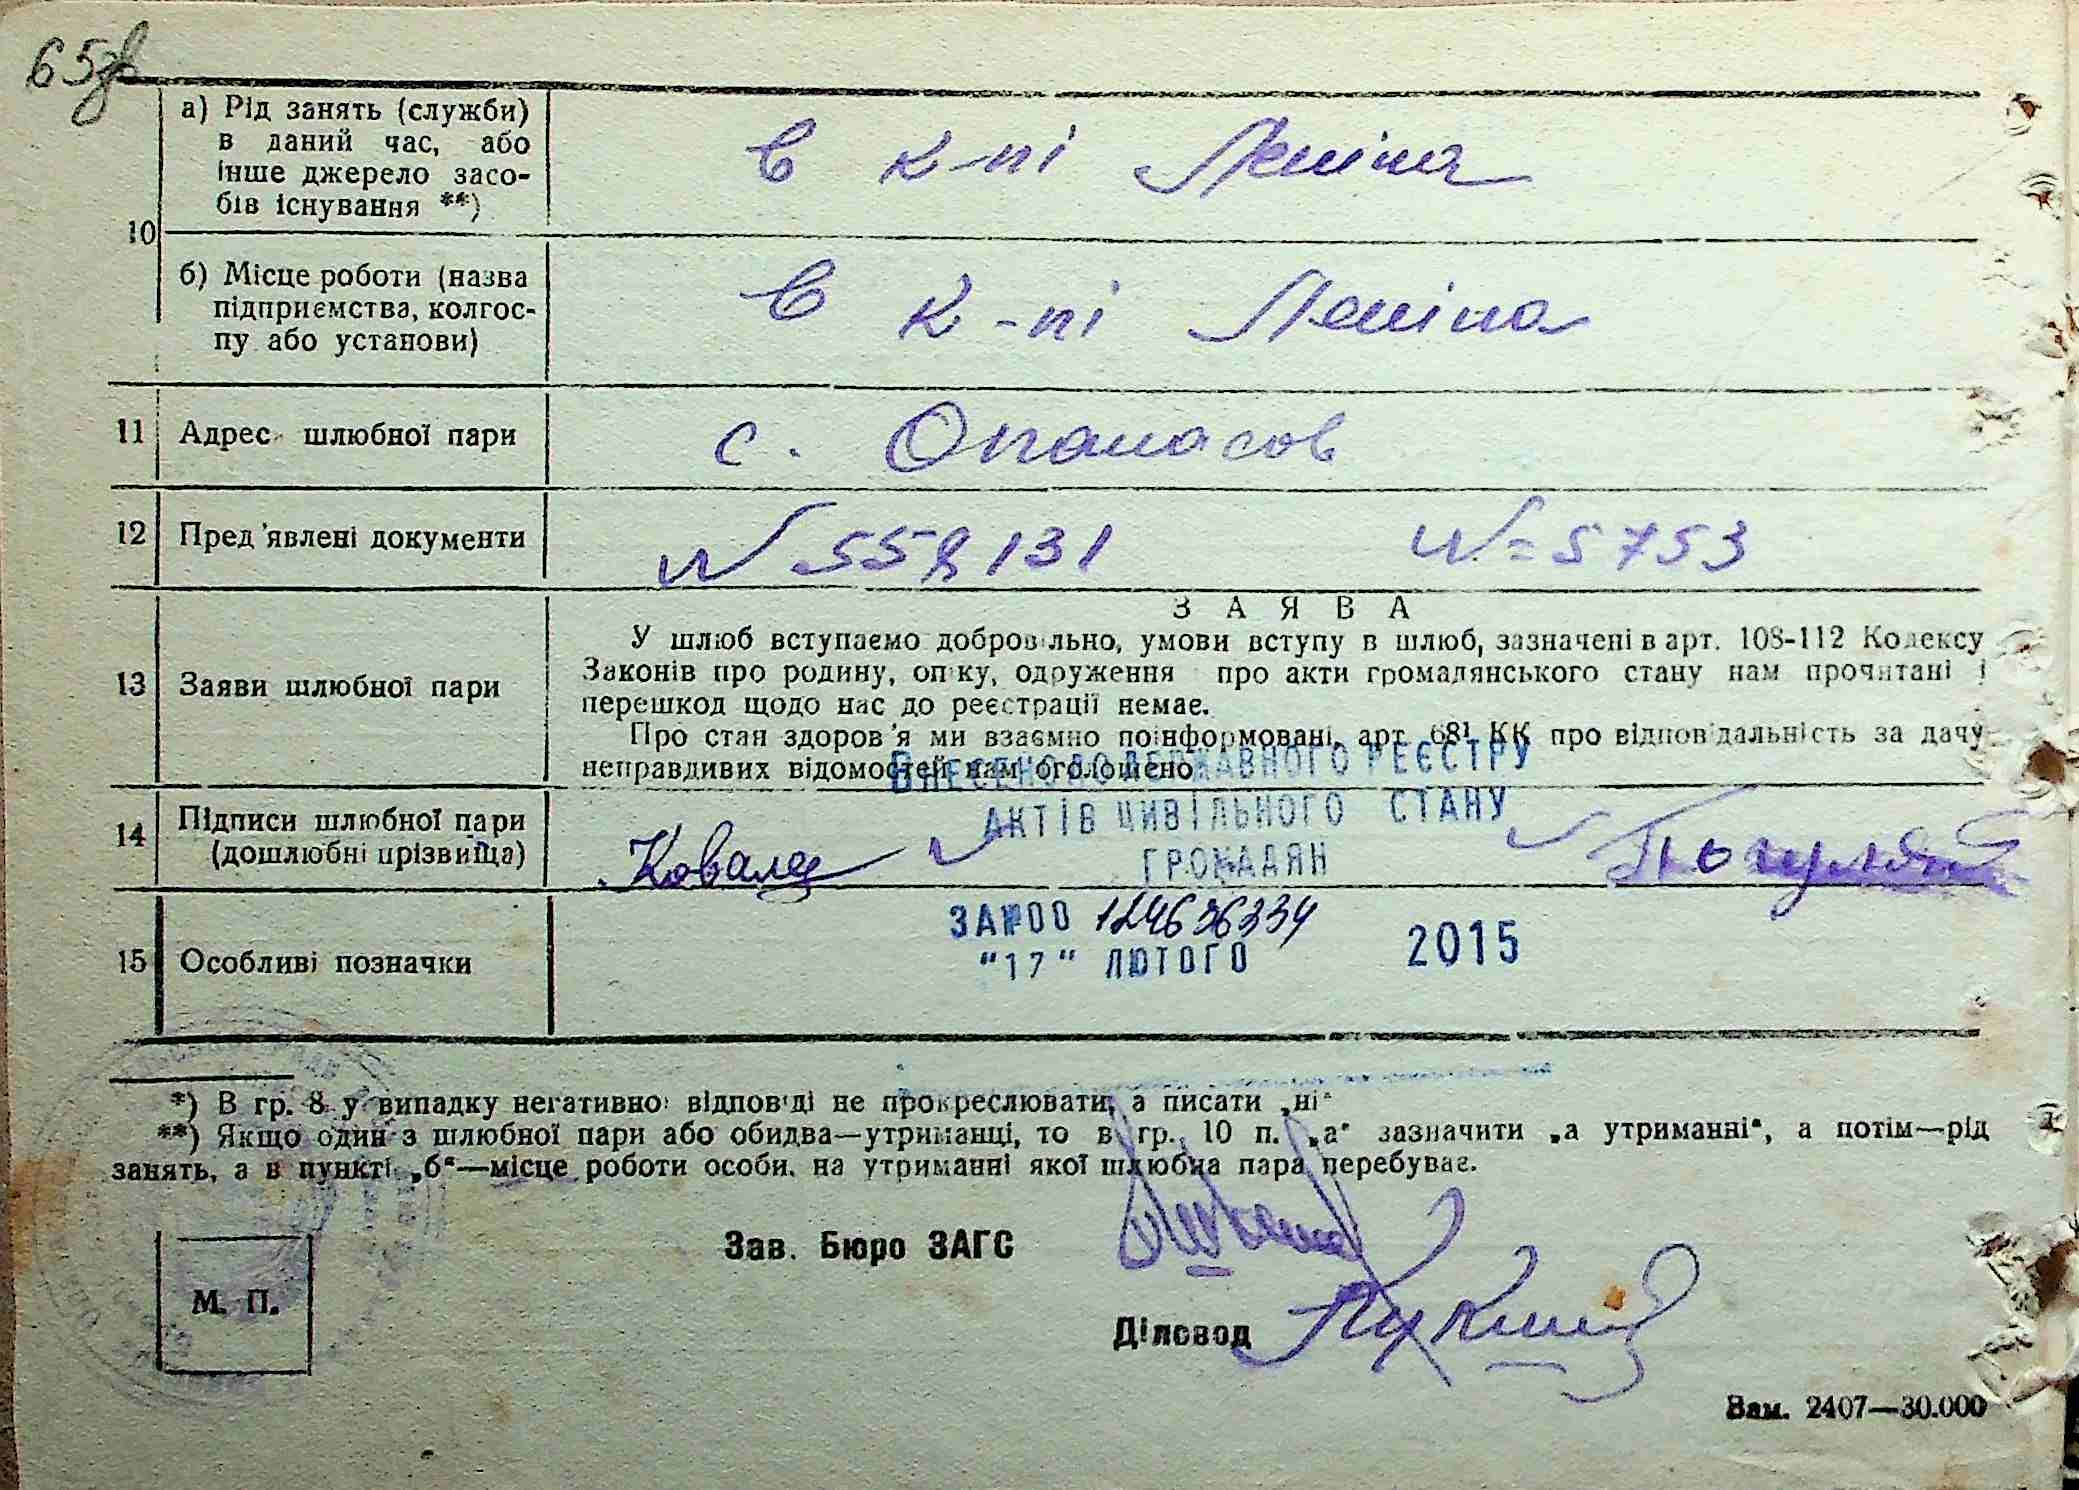 65зв
а) Рід занять (служби)
в даний час, або
інше джерело засо-
бів існування **)
в к-пі Леніна
10
б) Місце роботи (назва
підприємства, колгос-
пу або установи)
в к-пі Леніна
11 Адрес шлюбної пари с. Опанасов
12 Пред'явлені документи № 558131 № = 5753
ЗАЯВА
У шлюб вступаємо добровільно, умови вступу в шлюб, зазначені в арт. 108-112 Кодексу
13 Заяви шлюбної пари Законів про родину, опіку, одруження про акти громадянського стану нам прочитані і
перешкод щодо нас до реєстрації немає.
Про стан здоров'я ми взаємно поінформовані, арт 68¹ КК про відповідальність за дачу
неправдивих відомостей нам оголошено
ВНЕСЕНО ДО ДЕРЖАВНОГО РЕЄСТРУ
АКТІВ ЦИВІЛЬНОГО СТАНУ
ГРОМАДЯН
14 Підписи шлюбної пари
(дошлюбні прізвища)
Коваль
ЗА №00 124636334
"17" ЛЮТОГО 2015
15 Особливі позначки
*) В гр. 8 у випадку негативної відповіді не прокреслювати, а писати „ні"
**) Якщо один з шлюбної пари або обидва—утриманці, то в гр. 10 п. „а" зазначити „а утриманні", а потім—рід
занять, а в пункті „б"—місце роботи особи, на утриманні якої шлюбна пара перебуває.
Зав. Бюро ЗАГС
М. П.
Діловод
Зам. 2407—30.000